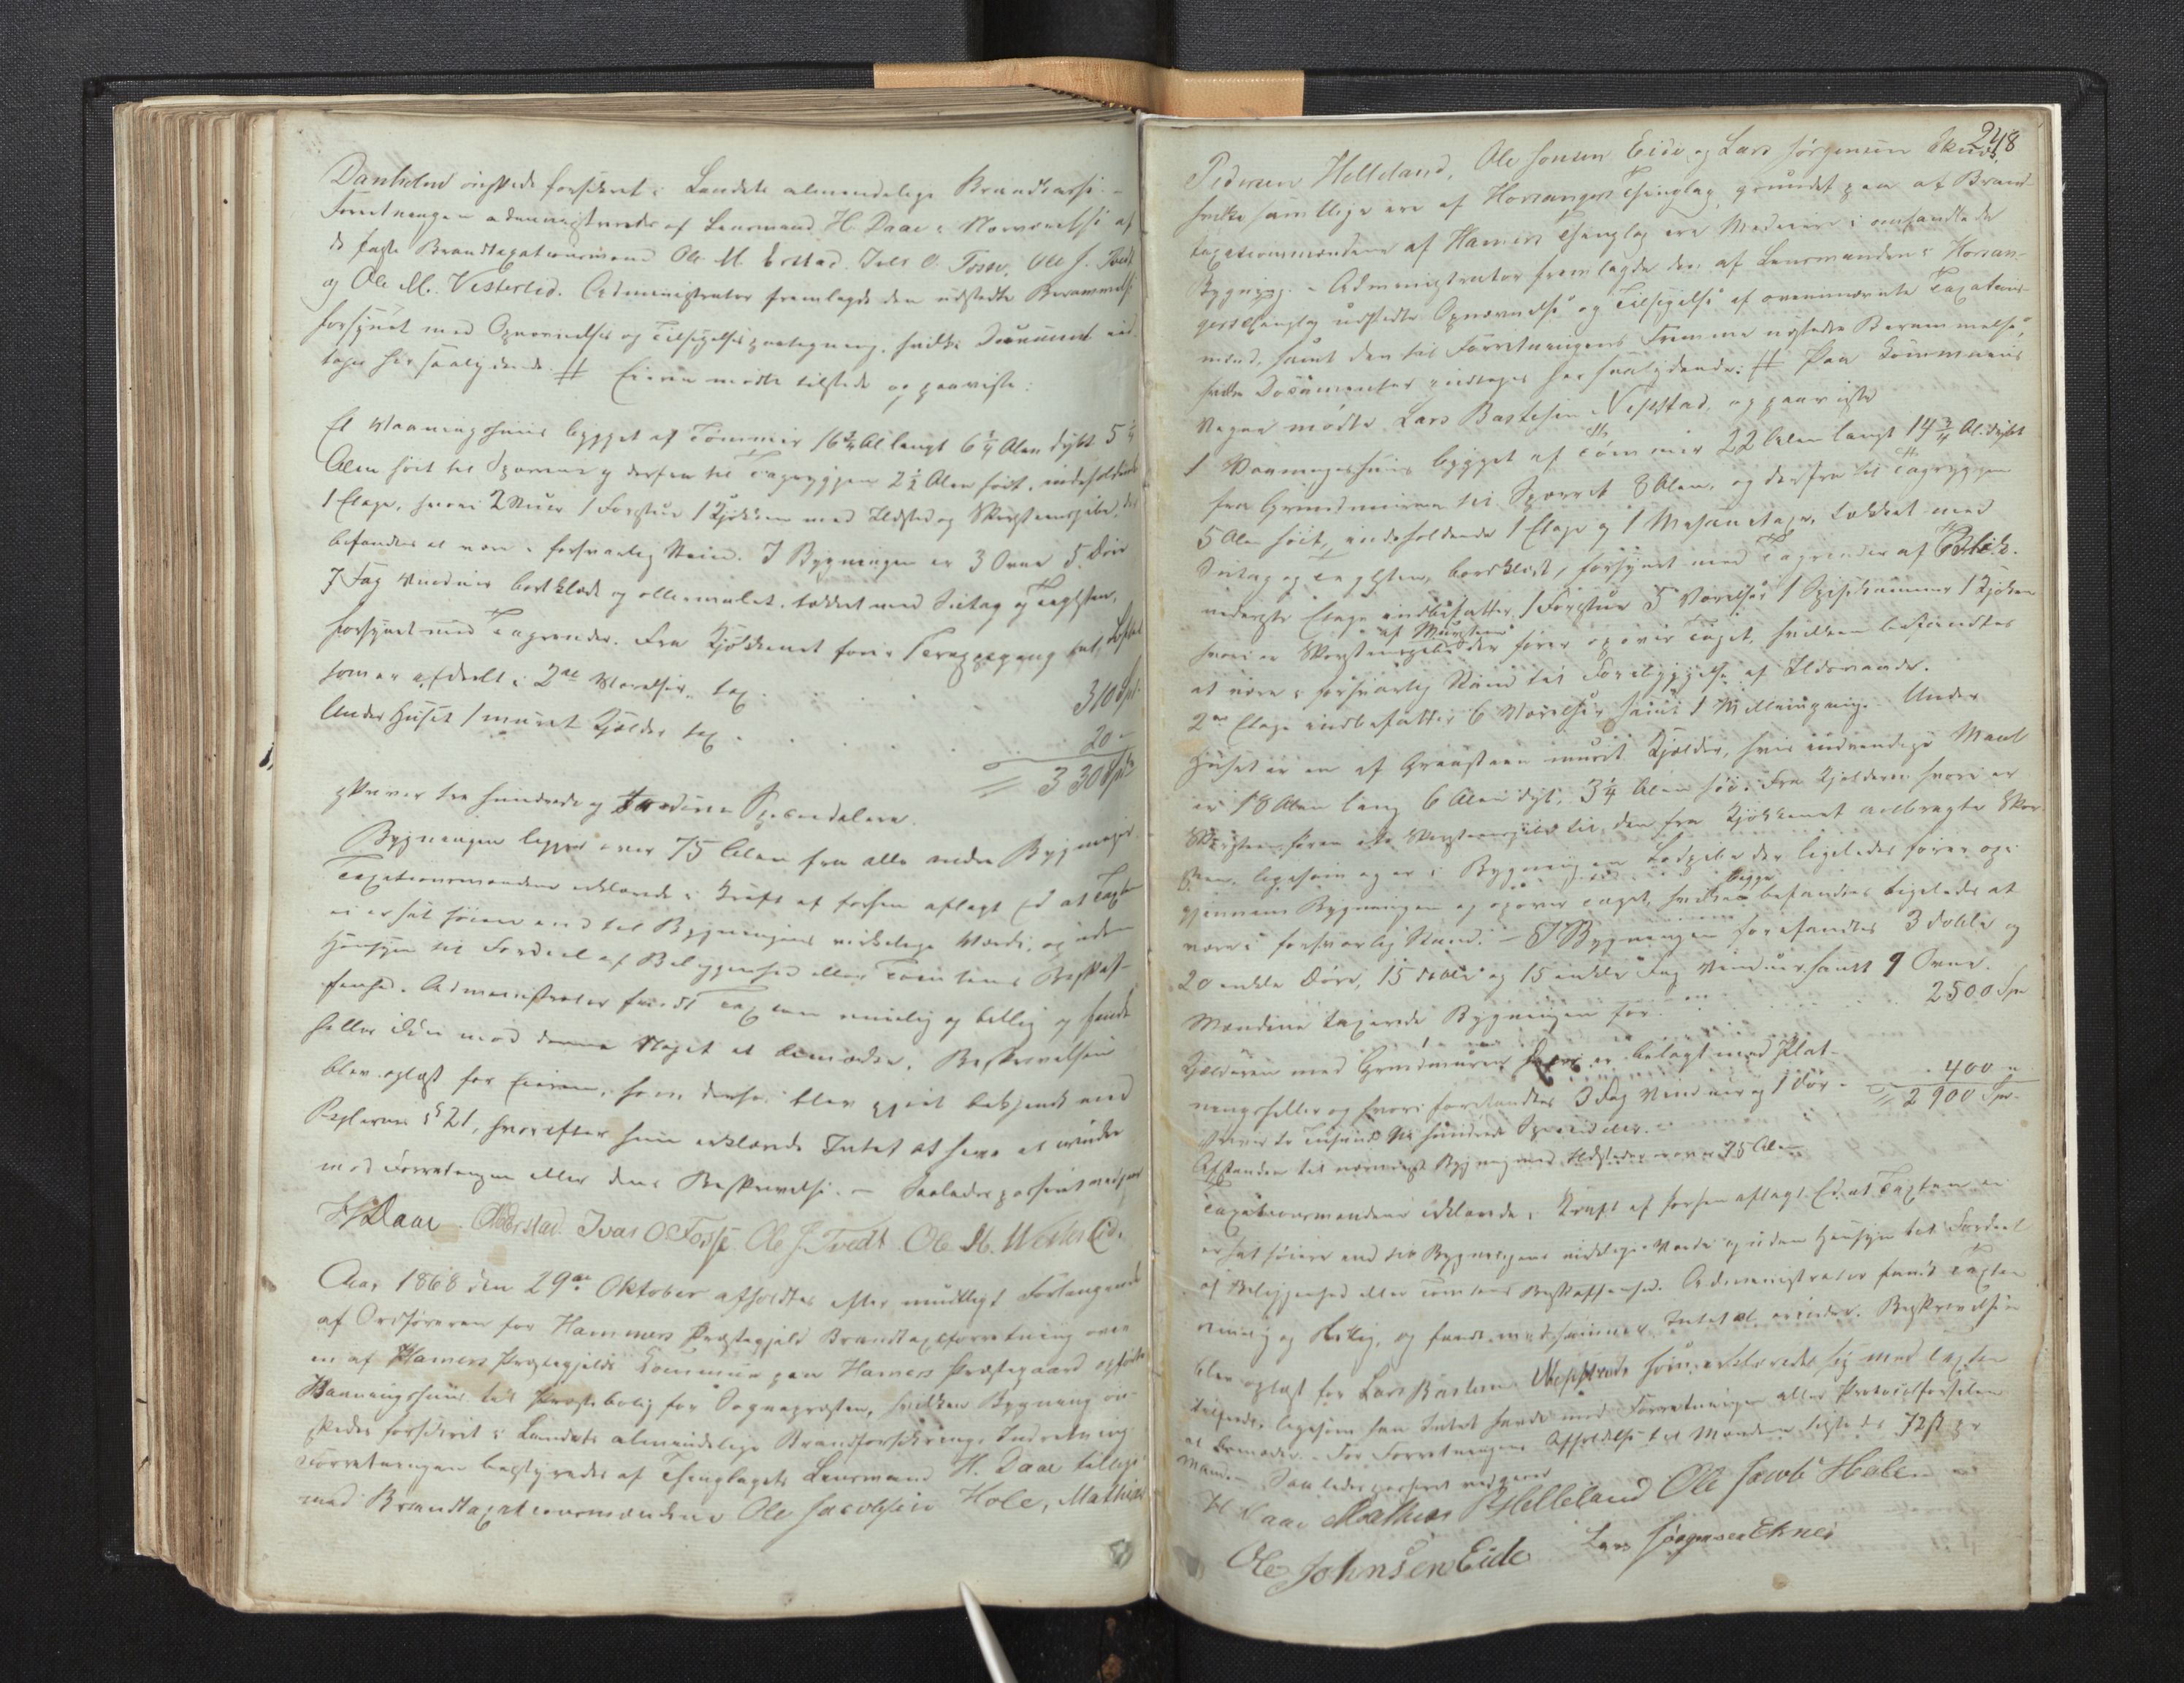 Danholm önskede forsikret i Landets almindelige Brandkasse. –
Forretningen administreredes af Lensmand H. Daae i Nærværelse af
de faste Brandtaxationsmænd Ole M. Erstad, Ivar O. Fosse, Ole J. Tvedt
og Ole M. Vesterlid. Administrator fremlagde den udstedte Berammelse
forsynet med Opnævnelses og Tilsigelsespaategning, hvilke Document ind-
tages her saalydende: # Eieren mødte tilstede og paaviste:
Et Vaaningshuus bygget af Tømmer 16 3/4 Al. langt 6 1/4 Alen dybt 5 1/4
Alen høit til Sparrene og derfra til Tagryggen 2 1/2 Alen høit, indeholdende
1 Etage, hvori 2 Stuer 1 Forstue 1 Kjøkken med Ildsted og Skorsteenspibe, der
befandtes at være i forsvarlig Stand. I Bygningen er 3 Ovne 5 Døre
7 Fag Vinduer bordklædt og oliemalet, tækket med Sutag og Taglsten,
forsynet med Tagrender. Fra Kjøkkenet fører 1 Trappegang til Loftet
som er afdeelt i 2de Værelser, tax. . . . . 310 Spd.
Under Huset 1 muret Kjelder tax . . . . . 20 "
= 330 Spd.
skriver tre hundrede og tredive Speciedalere.
Bygningen ligger over 75 Alen fra alle andre Bygninger.
Taxationsmændene erklærede i Kraft af forhen aflagt Ed at Taxten
ei er sat høiere end til Bygningens virkelige Værdi, og uden
Hensyn til Fordeel af Beliggenhed eller Tomtens Beskaf-
fenhed. Administrator fandt Taxten rimelig og billig og fandt
heller ikke mod denne Noget at bemærke. Beskrivelsen
blev oplæst for Eieren, som derhos blev gjort bekjendt med
Reglernes § 21, hvorefter han erklærede Intet at have at erindre
mod Forretningen eller dens Beskrivelse. – Saaledes passeret medgives
H Daae OMErstad Ivar O Fosse Ole J. Tvedt Ole M. Westerlid.
Aar 1868 den 29de Oktober afholdtes efter mundtligt Forlangende
af Ordføreren for Hammers Præstegjeld Brandtaxtforretning over
en af Hamers Præstegjelds Commune paa Hamers Præstegaard opført
Vaaningshuus til Præstebolig for Sognepræsten, hvilken Bygning øn-
skedes forsikret i Landets almindelige Brandforsikrings Indretning
Forretningen bestyredes af Thinglagets Lensmand H. Daae tillige
med Brandtaxationsmændene Ole Jacobsen Hole, Mathias
248
Pedersen Helleland, Ole Jonsen Eide og Lars Jørgensen Eknes,
hvilke samtlige ere af Hosangers Thinglag, grundet paa at Brand-
taxationsmændene af Hamers Thinglag ere Medeiere i omhandlede
Bygning. – Administrator fremlagde den af Lensmanden i Hosan-
gers Thinglag udstedte Opnævnelse og Tilsigelse af ovennævnte Taxations-
mænd, samt den til Forretningens Fremme udstedte Berammelse,
hvilke Documenter indtages her saalydende: # Paa Communens
Vegne mødte Lars Bastesen Nepstad, og paaviste
1 Vaaningshuus bygget af Tømmer 22 Alen langt 14 3/4 Al. dybt
fra Grundmuren til Sparret 8 Alen, og derfra til Tagryggen
5 Alen høit, indeholdende 1 Etage og 1 Mesanetage, tækket med
Sutag og Taglsten, bordklædt, forsynet med Tagrender af Blik.
nederste Etage indbefatter 1 Forstue 5 Værelser 1 Spisekammer 1 Kjøken
hvori er Skorsteenspibe af Muursteen der fører op over Taget, hvilken befandtes
at være i forsvarlig Stand til Forebyggelse af Ildsvaade.
2den Etage indbefatter 6 Værelser samt 1 Mellemgang. Under
Huset er en af Graasteen muret Kjelder, hvis indvendige Maal
er 18 Alen lang 6 Alen dyb, 3 1/4 Alen høi. Fra Kjelderen hvori er
Skorsteen fører een Skorsteenspibe til den fra Kjøkkenet anbragte Skor-
steen, ligesom og er i Bygningen Lodpibe der ligeledes fører op i
gjennem Bygningen og op over Taget, hvilke begge befandtes ligeledes at
være i forsvarlig Stand. – I Bygningen forefandtes 3 doble og
20 enkle Døre, 15 doble og 15 enkle Fag Vinduer samt 9 Ovne.
Mændene taxerede Bygningen for . . . . 2500 Spd
Kjelderen med Grundmuren hvori er belagt med Plat-
ningsheller og hvori forefandtes 3 Fag Vinduer og 1 Dør – 400 "
= 2900 Spd.
skriver to Tusinde Ni hundrede Speciedaler. –
Afstanden til nærmeste Bygning med Ildsteder er over 75 Alen
Taxationsmændene erklærede i Kraft af forhen aflagt Ed, at Taxten ei
er sat høiere end til Bygningens virkelige Værdi og uden Hensyn til Fordeel
af Beliggenhed eller Tomtens Beskaffenhed. Administrator fandt Taxten
rimelig og billig, og fandt mod samme Intet at erindre. Beskrivelsen
blev oplæst for Lars Bastesen Nepstad som erklærede sig med Taxten
tilfreds, ligesom han Intet havde mod Forretningen eller Protocolforselen
at bemærke. For Forretningens Afholdelse til Mændene tilstedes 72 ß pr
Mand. – Saaledes passeret medgives
H Daae Mathias P Helleland Ole Jacobs Hole
Ole Johnsen Eide Lars Jørgensen Eknes